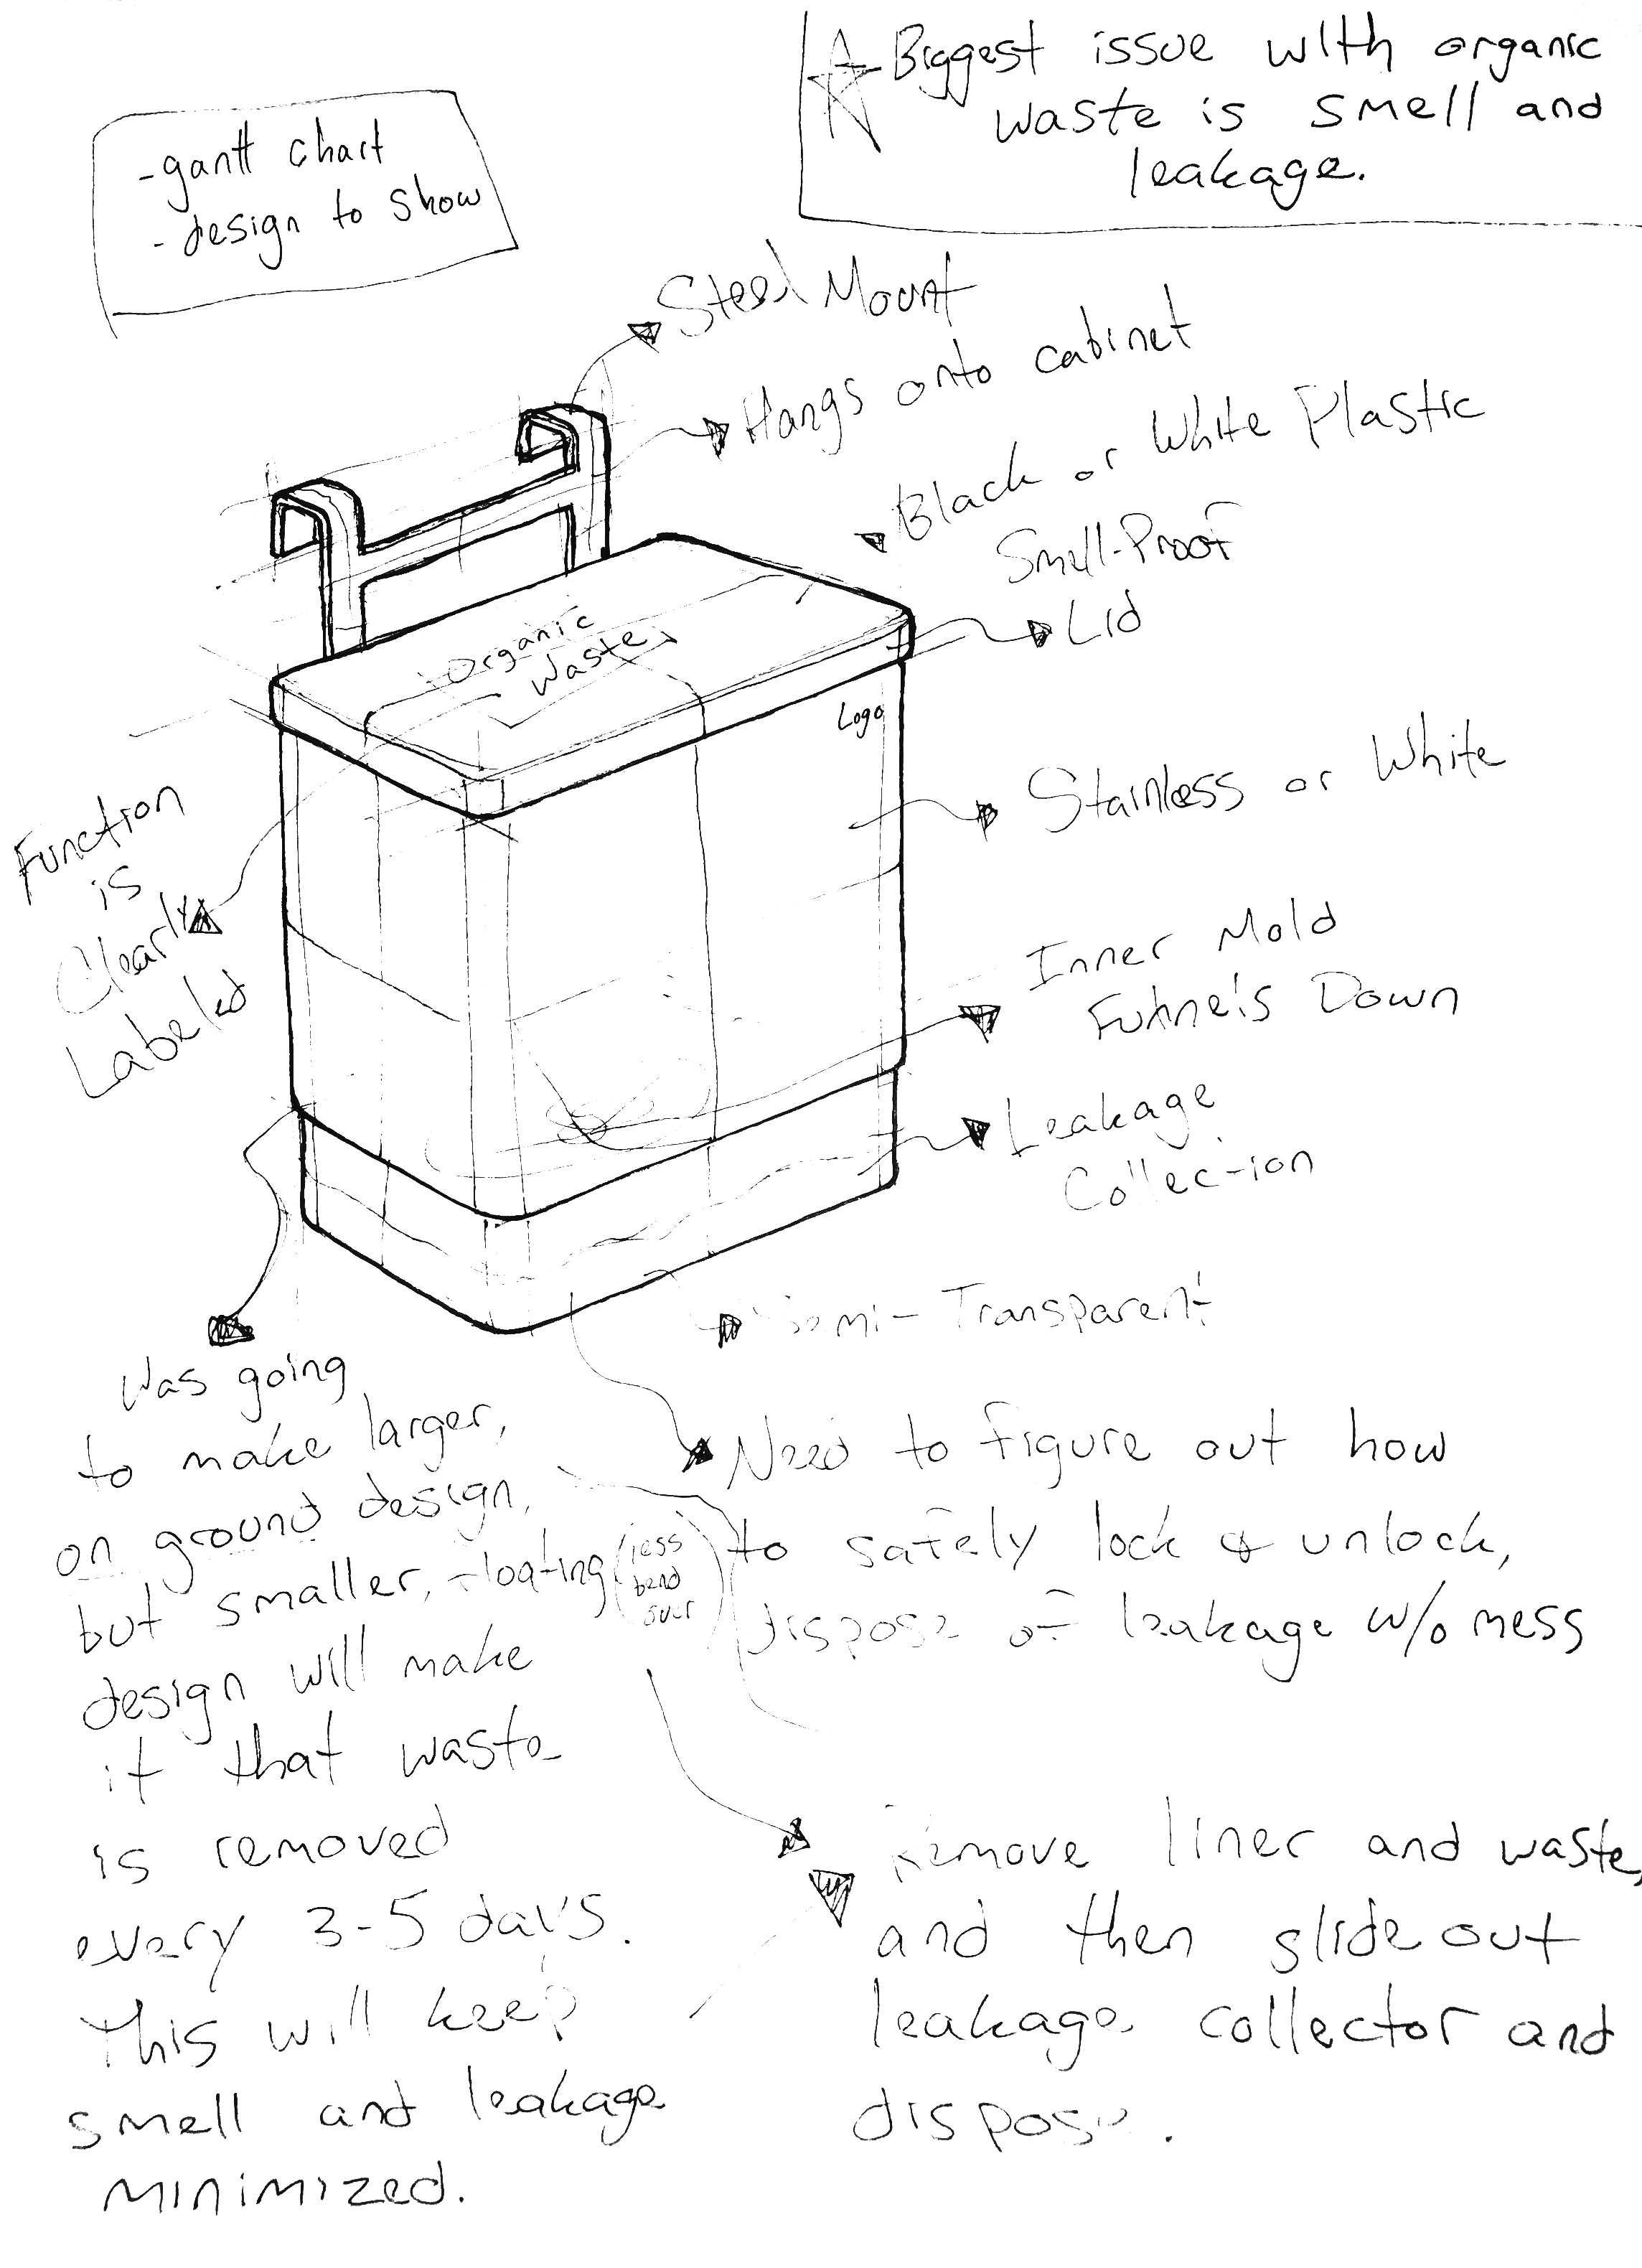 Biggest issue with organic
waste is smell and
leakage.
- gantt chart
- design to show
Steel Mount
Hangs onto cabinet
Black or White Plastic
Smell-Proof
Lid
Organic
Waste
Logo
Function
is
Clearly
Labeled
Stainless or White
Inner Mold
Funnels Down
Leakage
Collection
Semi-Transparent
Was going
to make larger,
on ground design,
but smaller, floating (less
bend
over)
design will make
it that waste
is removed
every 3-5 days.
This will keep
smell and leakage
minimized.
Need to figure out how
to safely lock & unlock,
dispose of leakage w/o mess
Remove liner and waste,
and then slide out
leakage collector and
dispose.